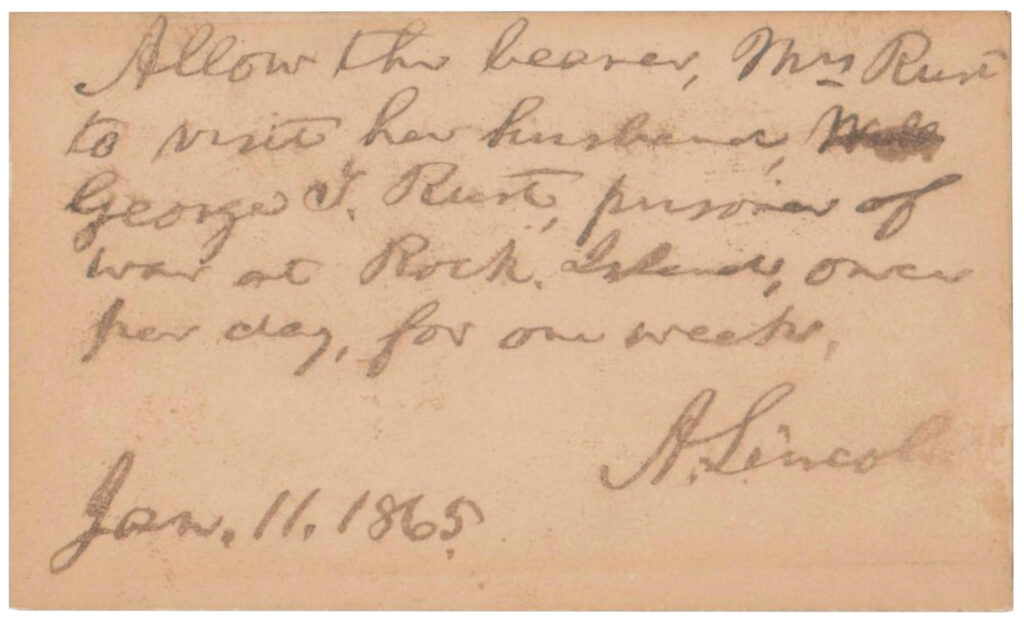 Allow the bearer, Mrs Rust
to visit her husband,
George T. Rust, prisoner of
war at Rock Island, once
per day, for one week.
A. Lincoln
Jan. 11. 1865.